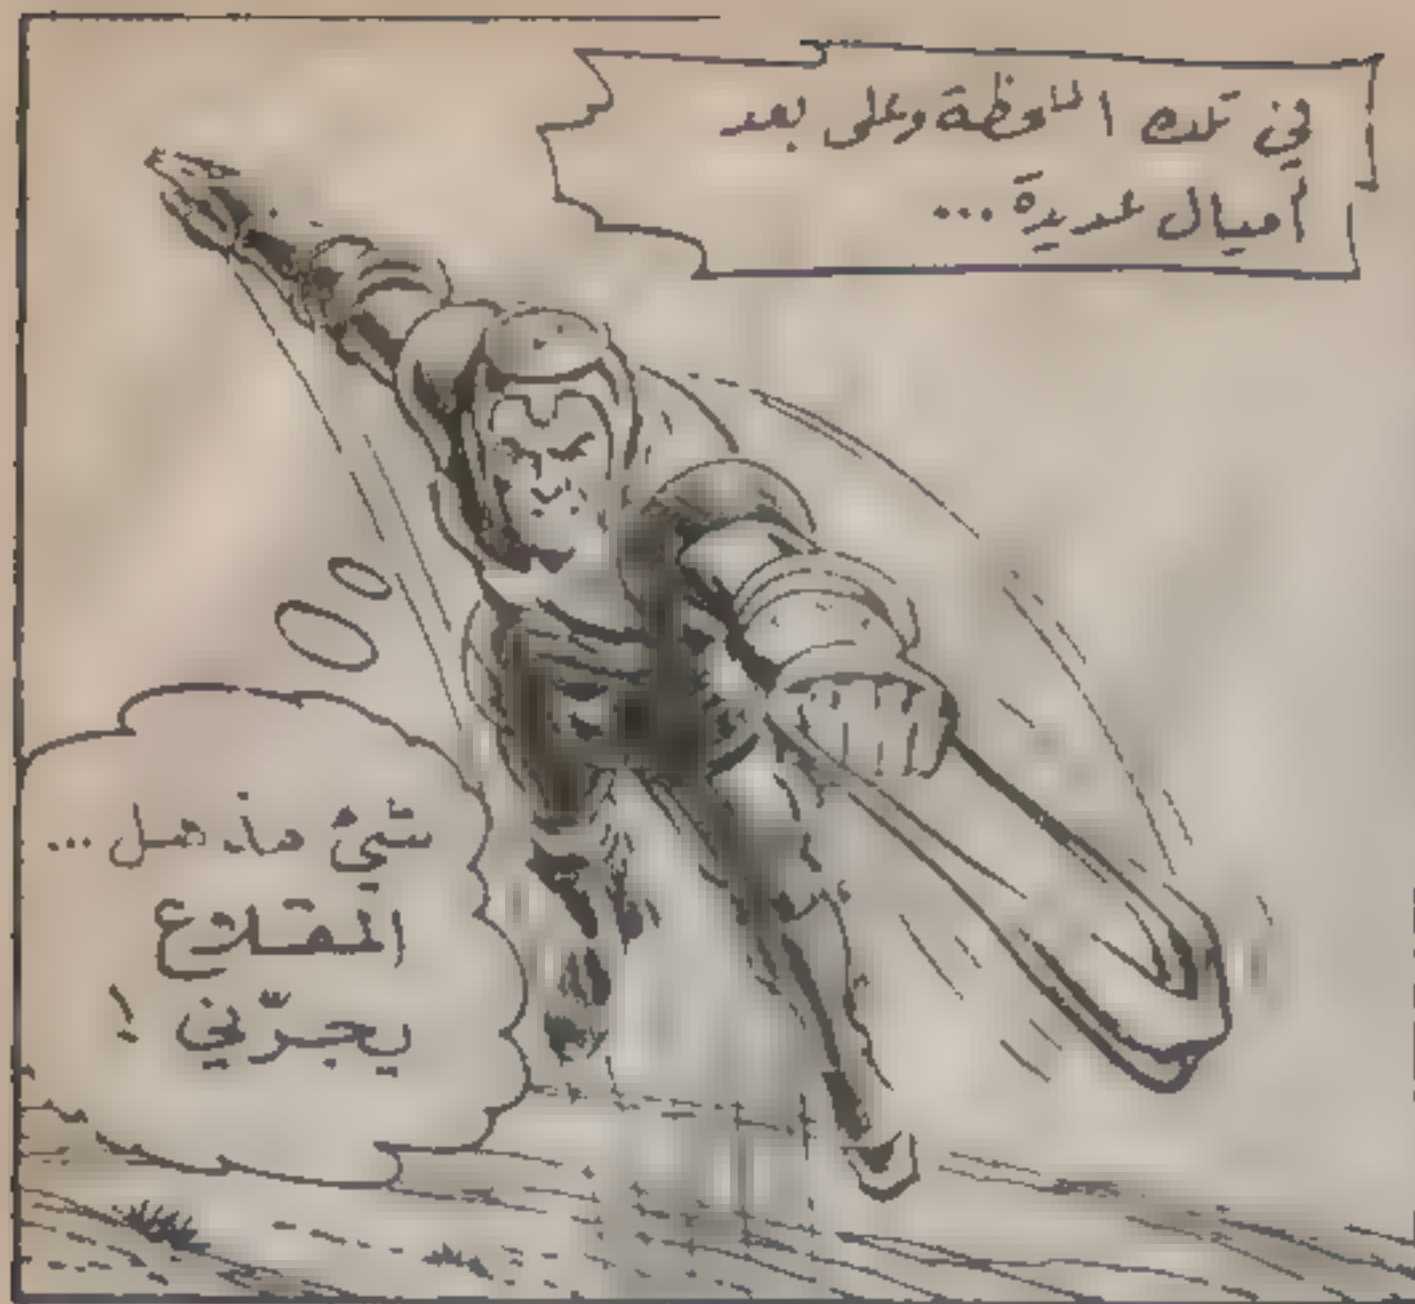 في تلك اللحظة وعلى بعد
أميال عديدة ...
شئ مذهل ...
المقلاع
يجرّني !